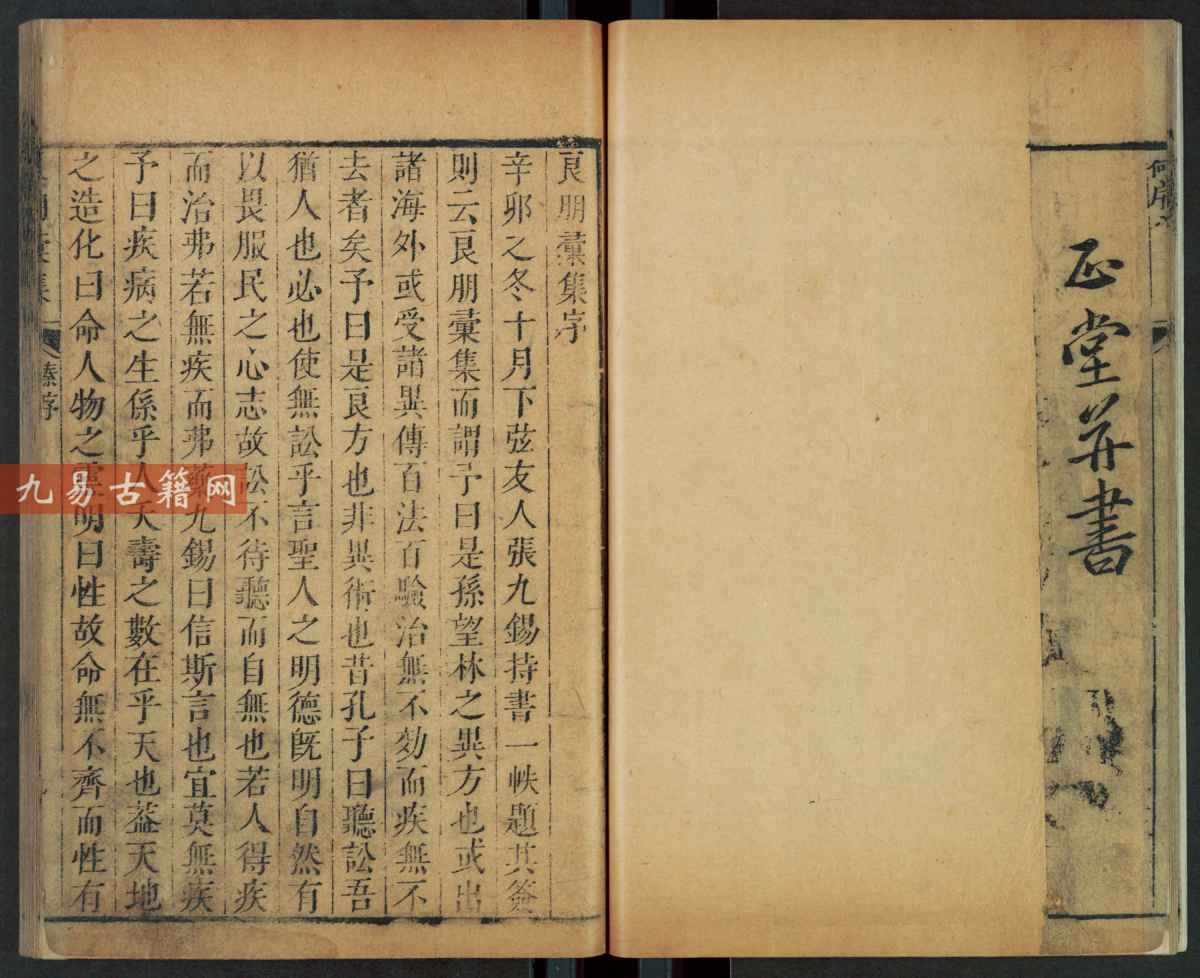 正堂並書
良朋彙集序
辛卯之冬十月下弦友人張九錫持書一帙題其簽
則云良朋彙集而謂予曰是孫望林之異方也或出
諸海外或受諸異傳百法百驗治無不効而疾無不
去者矣予曰是良方也非異術也昔孔子曰聽訟吾
猶人也必也使無訟乎言聖人之明德既明自然有
以畏服民之心志故訟不待聽而自無也若人得疾
而治弗若無疾而弗藥九錫曰信斯言也宜莫無疾
予曰疾病之生係乎人夭壽之數在乎天也葢天地
之造化曰命人物之靈明曰性故命無不齊而性有
九易古籍网